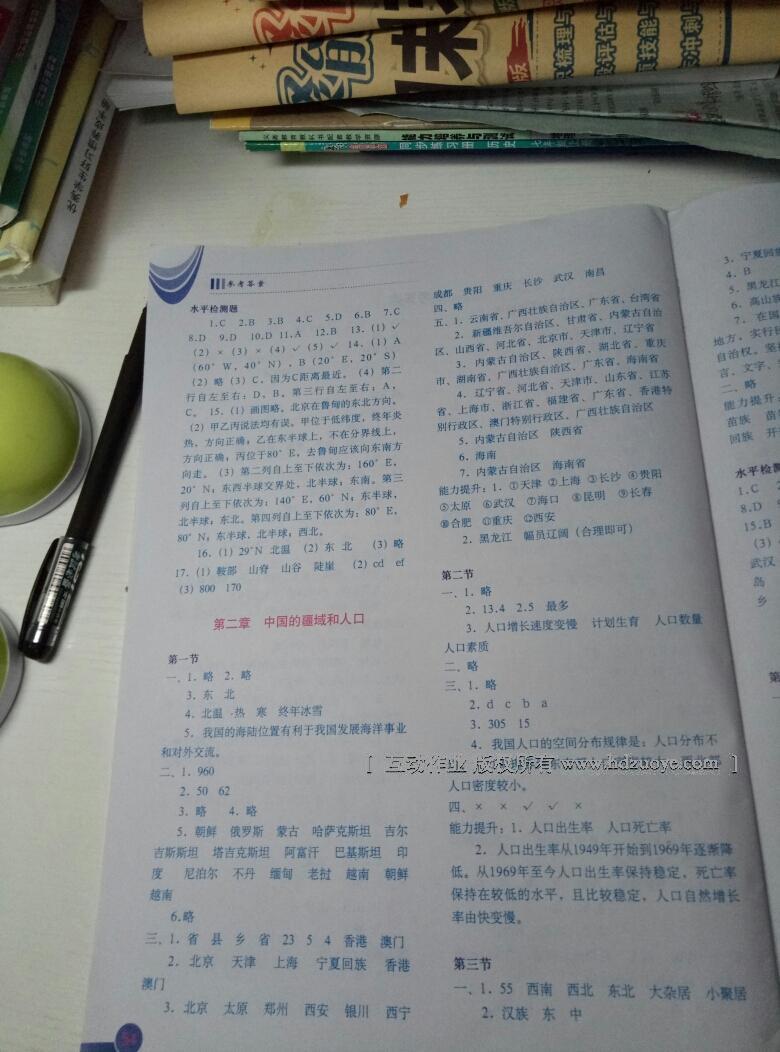 优秀学生好习惯养成手册
版
义务教育教科书配套教学资源
能力培养与测试
同步练习册 历史
参考答案
水平检测题
1.C 2.B 3.B 4.C 5.D 6.B 7.C
8.D 9.D 10.D 11.A 12.B 13.(1)√
(2)×(3)×(4)√(5)√ 14.(1)A
(60°W,40°N),B(20°E,20°S)
(2)略(3)C,因为C距离最近。(4)第二
行自左至右:D,B。第三行自左至右:A,
C。15.(1)画图略,北京在鲁甸的东北方向。
(2)甲乙丙说法均有误。甲位于低纬度,终年炎
热,方向正确;乙在东半球上,不在分界线上,
方向正确;丙位于80°E,去鲁甸应该向东南方
向走。(3)第二列自上至下依次为:160°E,
20°N;东西半球交界处,北半球;东南。第三
列自上至下依次为:140°E,60°N;东半球,
北半球;东北。第四列自上至下依次为:80°E,
80°N;东半球,北半球;西北。
16.(1)29°N 北温 (2)东 北 (3)略
17.(1)鞍部 山脊 山谷 陡崖 (2)cd ef
(3)800 170
第二章 中国的疆域和人口
第一节
一、1.略 2.略
3.东 北
4.北温 热 寒 终年冰雪
5.我国的海陆位置有利于我国发展海洋事业
和对外交流。
二、1.960
2.50 62
3.略 4.略
5.朝鲜 俄罗斯 蒙古 哈萨克斯坦 吉尔
吉斯斯坦 塔吉克斯坦 阿富汗 巴基斯坦 印
度 尼泊尔 不丹 缅甸 老挝 越南 朝鲜
越南
6.略
三、1.省 县 乡 省 23 5 4 香港 澳门
2.北京 天津 上海 宁夏回族 香港
澳门
3.北京 太原 郑州 西安 银川 西宁
成都 贵阳 重庆 长沙 武汉 南昌
四、略
五、1.云南省、广西壮族自治区、广东省、台湾省
2.新疆维吾尔自治区、甘肃省、内蒙古自治
区、山西省、河北省、北京市、天津市、辽宁省
3.内蒙古自治区、陕西省、湖北省、重庆
市、湖南省、广西壮族自治区、广东省、海南省
4.辽宁省、河北省、天津市、山东省、江苏
省、上海市、浙江省、福建省、广东省、香港特
别行政区、澳门特别行政区、广西壮族自治区
5.内蒙古自治区 陕西省
6.海南
7.内蒙古自治区 海南省
能力提升:1.①天津 ②上海 ③长沙 ④贵阳
⑤太原 ⑥武汉 ⑦海口 ⑧昆明 ⑨长春
⑩合肥 ⑪重庆 ⑫西安
2.黑龙江 幅员辽阔(合理即可)
第二节
一、1.略
2.13.4 2.5 最多
3.人口增长速度变慢 计划生育 人口数量
人口素质
二、略
三、1.略
2.d c b a
3.305 15
4.我国人口的空间分布规律是:人口分布不
[ 互动作业 版权所有 www.hdzuoye.com ]
人口密度较小。
四、× × √ √ ×
能力提升:1.人口出生率 人口死亡率
2.人口出生率从1949年开始到1969年逐渐降
低。从1969年至今人口出生率保持稳定,死亡率
保持在较低的水平,且比较稳定,人口自然增长
率由快变慢。
第三节
一、1.55 西南 西北 东北 大杂居 小聚居
2.汉族 东 中
3.宁夏回
4.B
5.黑龙江
6.高山
7.在国
地方,实行
自治权。坚
言、文字、
二、略
能力提升:
苗族 苗
回族 开
水平检测
1.C
8.D
15.B
(3)
武汉
岛
乡